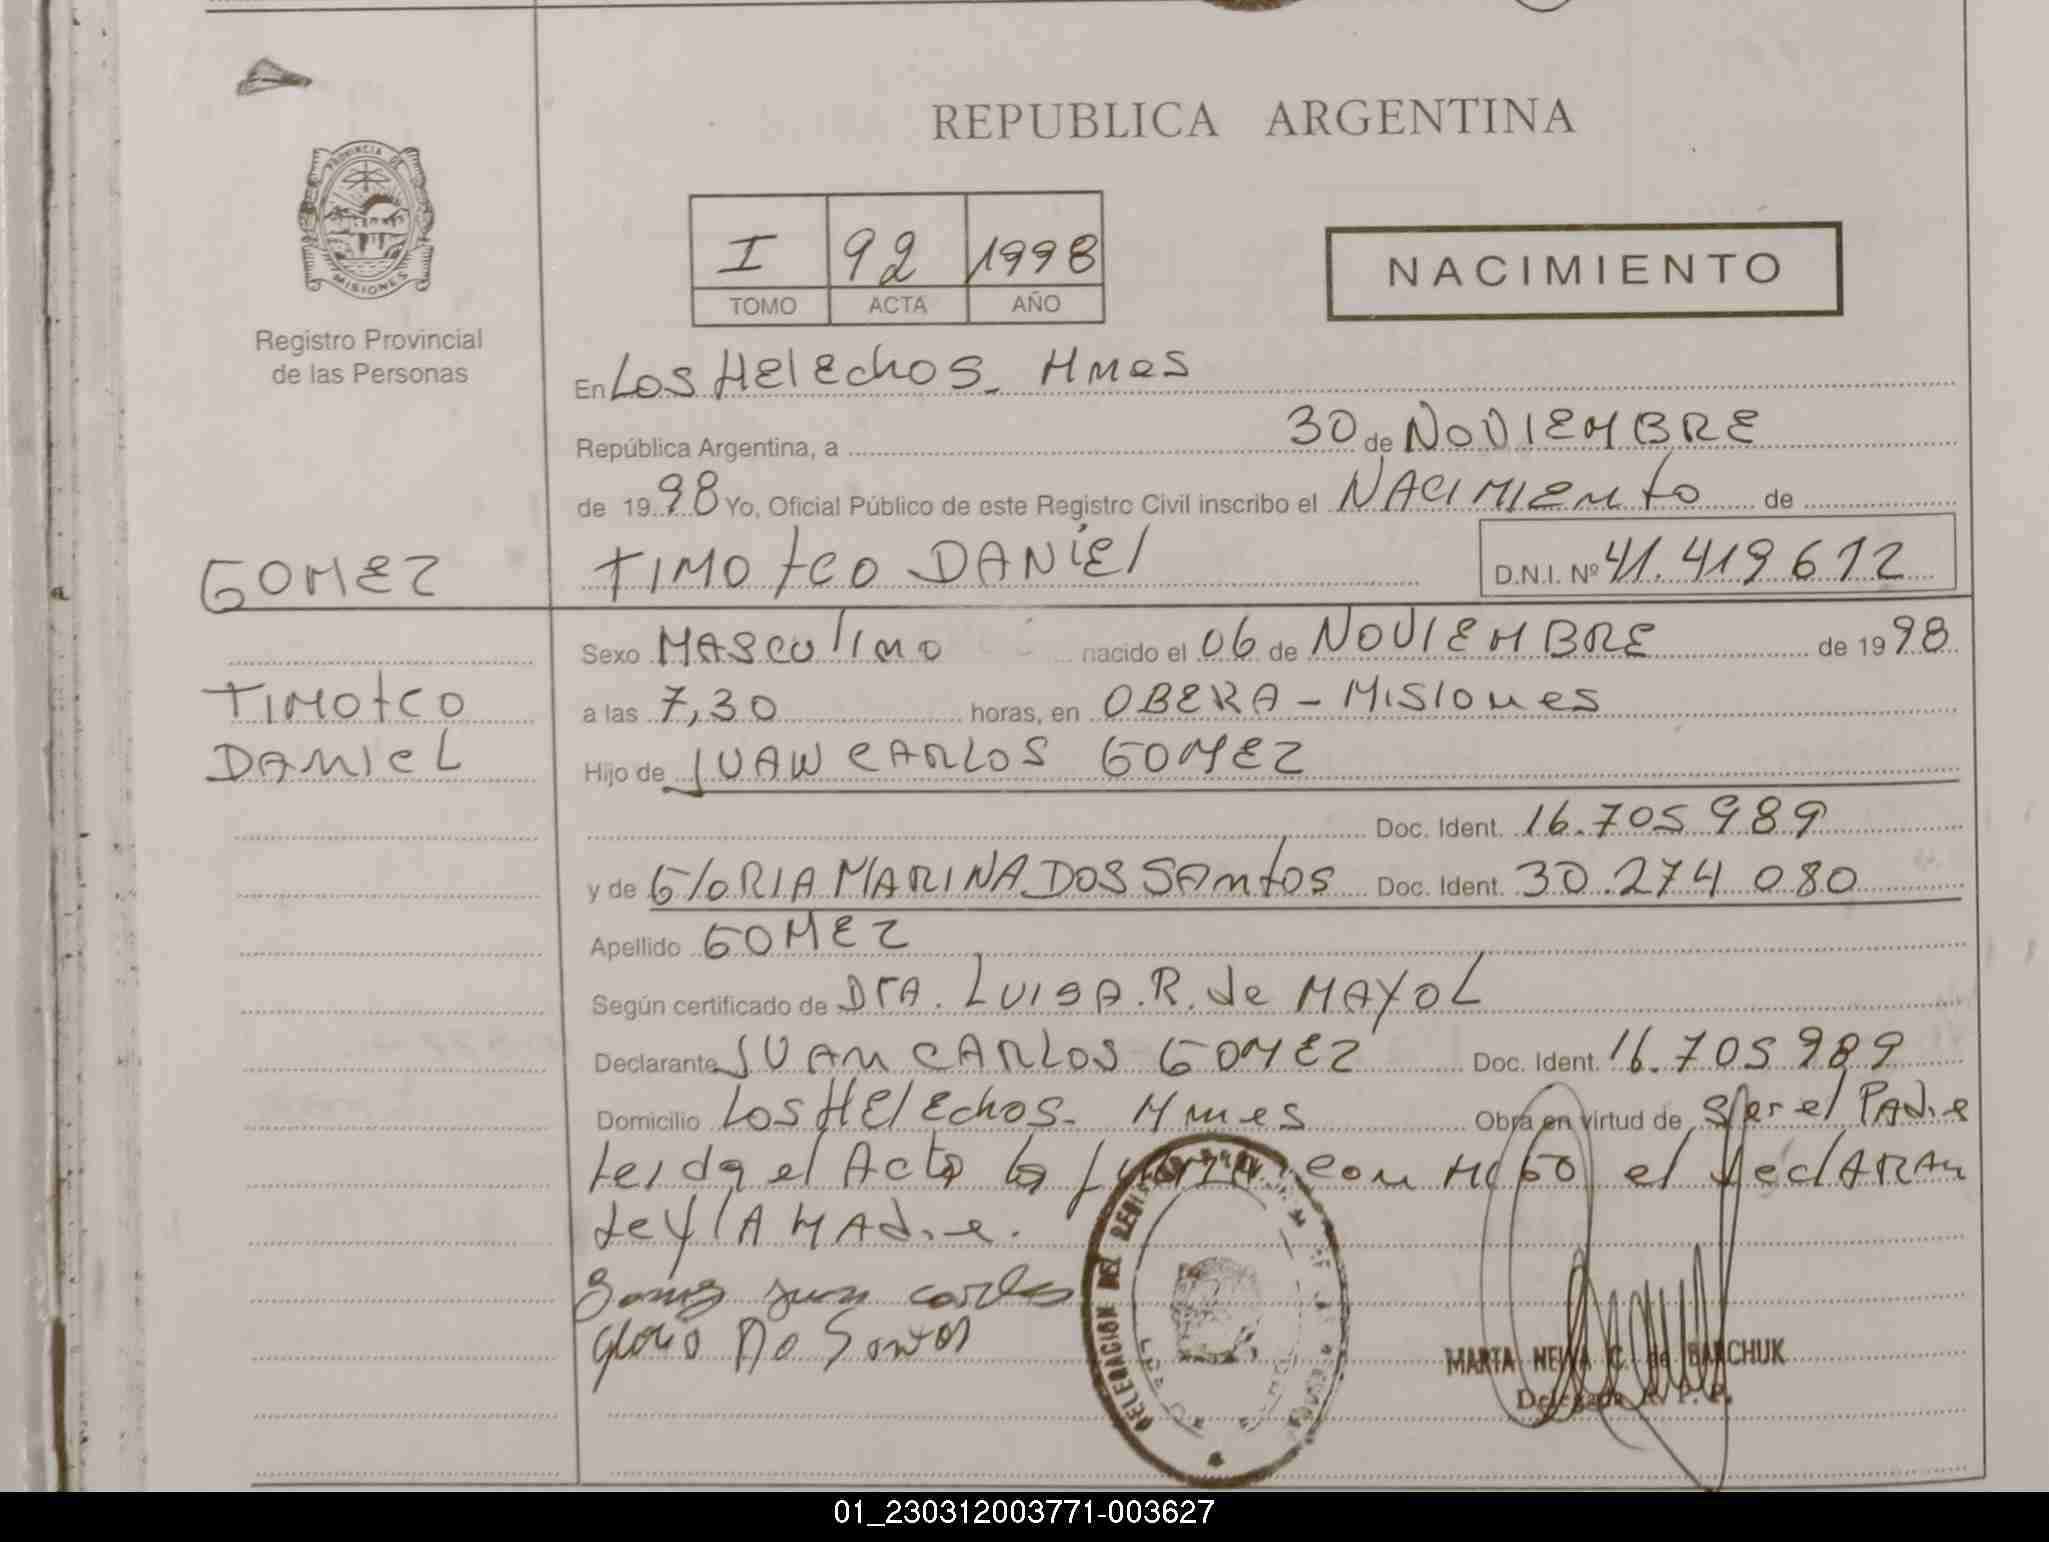 REPUBLICA ARGENTINA
PROVINCIA DE
MISIONES
Registro Provincial
de las Personas
I 92 1998
TOMO ACTA AÑO
NACIMIENTO
En Los HElEchos. Mnes
República Argentina, a 30 de NOVIEMBRE
de 1998 Yo, Oficial Público de este Registro Civil inscribo el NACIMIENto de
GOMEZ
TIMOtEO DANiEl D.N.I. Nº 41.419.612
Sexo MAScUlINO nacido el 06 de NOVIEMBRE de 1998
TIMOtEO
a las 7,30 horas, en OBERA - MISIONES
DANIEL
Hijo de JUAN CARLOS GOMEZ
Doc. Ident. 16.705.989
y de GlORIA MARINA DOS SANtOS Doc. Ident. 30.274.080
Apellido GOMEZ
Según certificado de DrA. LUISA.R. de MAYOL
Declarante JUAN CARLOS GOMEZ Doc. Ident. 16.705.989
Domicilio Los HElEchos. Mnes Obra en virtud de Ser el PAdre
Leida el Acta la firman con MIGO el declARAN
te Y lA MAdre.
Gomez Juan carlos
Gloria Do Santos
DELEGACIÓN DEL
MARTA NELVA C. de BARCHUK
Delegada R. P. P.
01_230312003771-003627